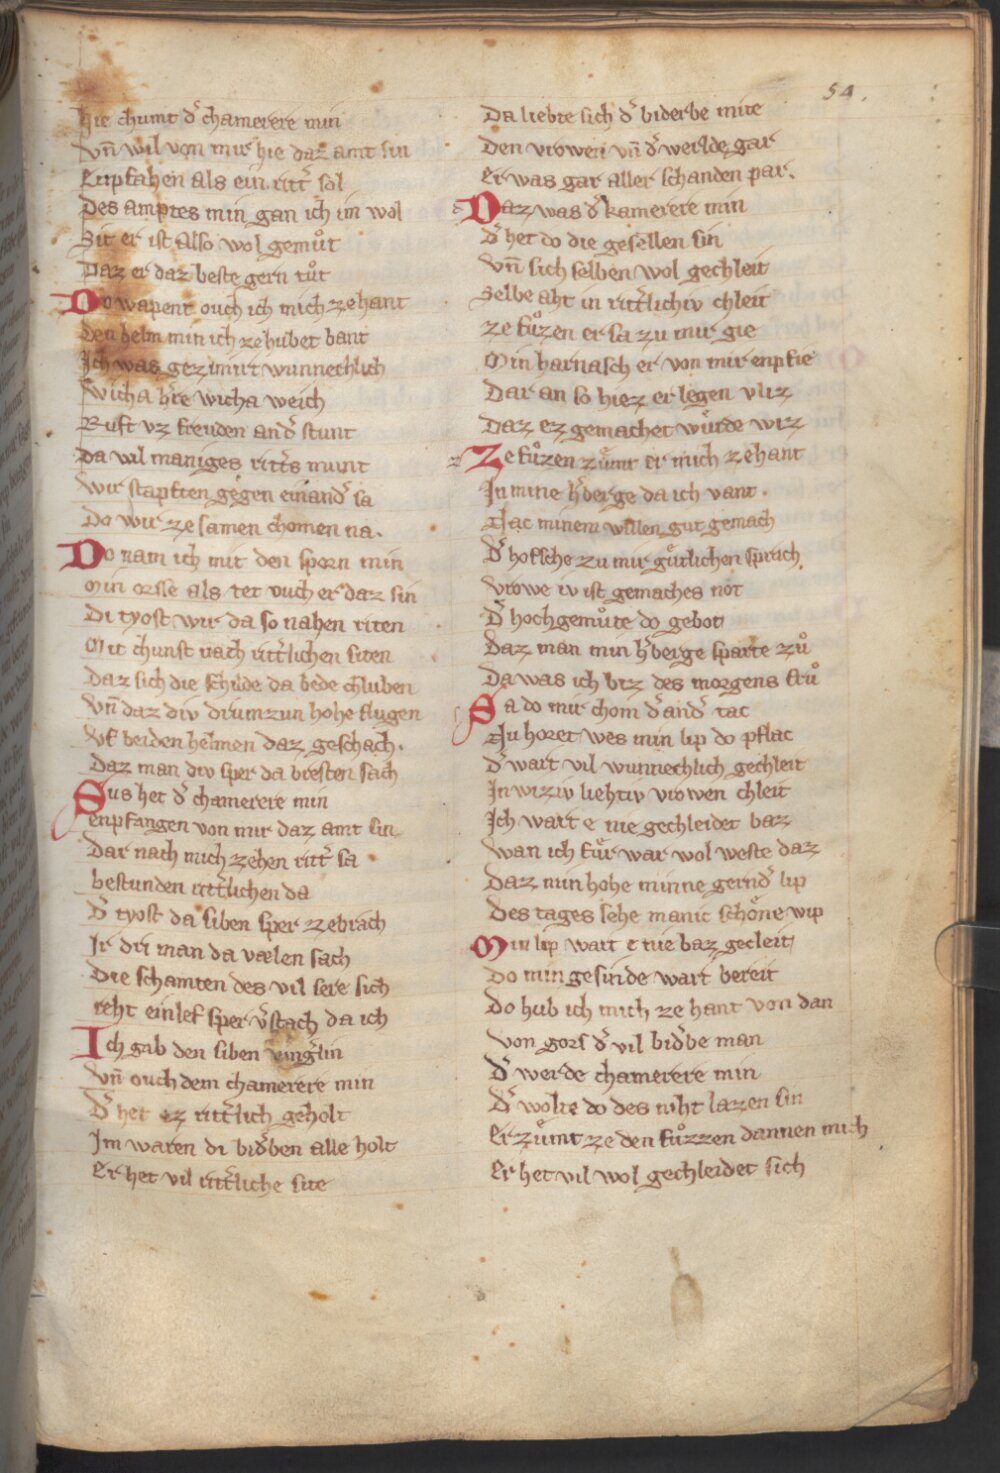 54.
hie chumt d̉ chamerere min
vn̄ wil von mir hie daz amt sin
Enpfahen als ein ritt̉ sol
Des amptes min gan ich im wol
Sit er ist also wol gemůt
Daz er daz beste gern tůt
Do wapent ouch ich mich ze hant
den helm min ich ze hubet bant
Ich was gezimirt wunnechlich
wicha h̉re wicha weich
Ruft vz freuden and̉ stunt
Da wil maniges ritt̉s munt
wir stapften gegen einand̉ sa
Do wir ze samen chomen na.
Do nam ich mit den sporn min
Min orsse als tet ouch er daz sin
Di tyost wir da so nahen riten
Mit chunst nach ritt̉lichen siten
Daz sich die schilde da bede chluben
Vn̄ daz div drumzun hohe flugen
Vf beiden helmen daz geschach.
Daz man div sper da bresten sach
Sus het d̉ chamerere min
enpfangen von mir daz amt sin
Dar nach mich zehen ritt̉ sa
bestunden ritt̉lichen da
D̉ tyost da siben sper zebrach
Ir dri man da vælen sach
Die schamten des vil sere sich
reht einlef sper v̉stach da ich
Ich gab den siben vingl̉in
vn̄ ouch dem chamerere min
D̉ het ez ritt̉lich geholt
Im waren di bid̉ben alle holt
Er het vil ritt̉liche site
Da liebte sich d̉ biderbe mite
Den vrowen vn̄ d̉ werlde gar
Er was gar aller schanden par.
Daz was d̉ kamerere min
D̉ het do die gesellen sin
Vn̄ sich selben wol gechleit
Selbe aht in ritt̉lichiv chleit
ze fůzen er sa zu mir gie
Min harnasch er von mir enpfie
Dar an so hiez er legen vliz
Daz ez gemachet wůrde wiz
Ze fůzen zůmt er mich ze hant
In mine h̉berge da ich vant.
Nac minem willen gut gemach
D̉ hofsche zu mir gůtlichen sprach.
Vrowe iv ist gemaches not
D̉ hochgemůte do gebot
Daz man min h̉berge sparte zů
Da was ich biz des morgens frů
Sa do mir chom d̉ and̉ tac
Nu horet wes min lip do pflac
D̉ wart vil wunnechlich gechleit
In wiziv liehtiv vrowen chleit
Ich wart e nie gechleidet baz
wan ich fůr war wol weste daz
Daz min hohe minne gernd̉ lip
Des tages sehe manic schone wip
Min lip wart e nie baz gecleit
Do min gesinde wart bereit
Do hub ich mich ze hant von dan
Von gors d̉ vil bid̉be man
D̉ werde chamerere min
D̉ wolte do des niht lazen sin
Er zůmt ze den fůzzen dannen mich
Er het vil wol gechleidet sich